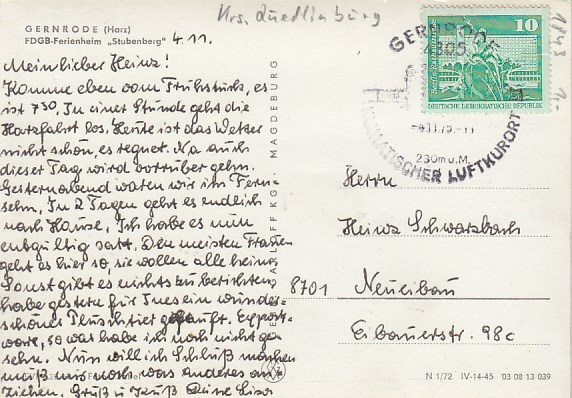 Krs. Quedlinburg
GERNRODE (Harz)
FDGB-Ferienheim „Stubenberg"
4.11.
Mein lieber Heinz!
Komme eben vom Frühstück, es
ist 7³⁰, In einer Stunde geht die
Harzfahrt los. Heute ist das Wetter
nicht schön, es regnet. Na auch
dieser Tag wird vorrüber gehn.
Gesternabend waren wir im Fern-
sehn, In 2 Tagen geht es endlich
nach Hause, Ich habe es nun
entgültig satt. Den meisten Frauen
geht es hier so, sie wollen alle heim
Sonst gibt es nichts zu berichten
habe gestern für Ines ein wunder-
schönes Plüschtier gekauft. Export-
ware, so was habe ich noch nicht ge-
sehn. Nun will ich Schluß machen
muß mir noch was anderes an-
ziehen. Gruß u Kuß Deine
MAGDEBURG
GERNRODE
4305
230m ü.M.
KLIMATISCHER LUFTKURORT
10
DEUTSCHE DEMOKRATISCHE REPUBLIK
Herrn
Heinz Schwarzbach
8701 Neueibau
Eibauerstr. 98c
N 1/72 IV-14-45 03 08 13 039